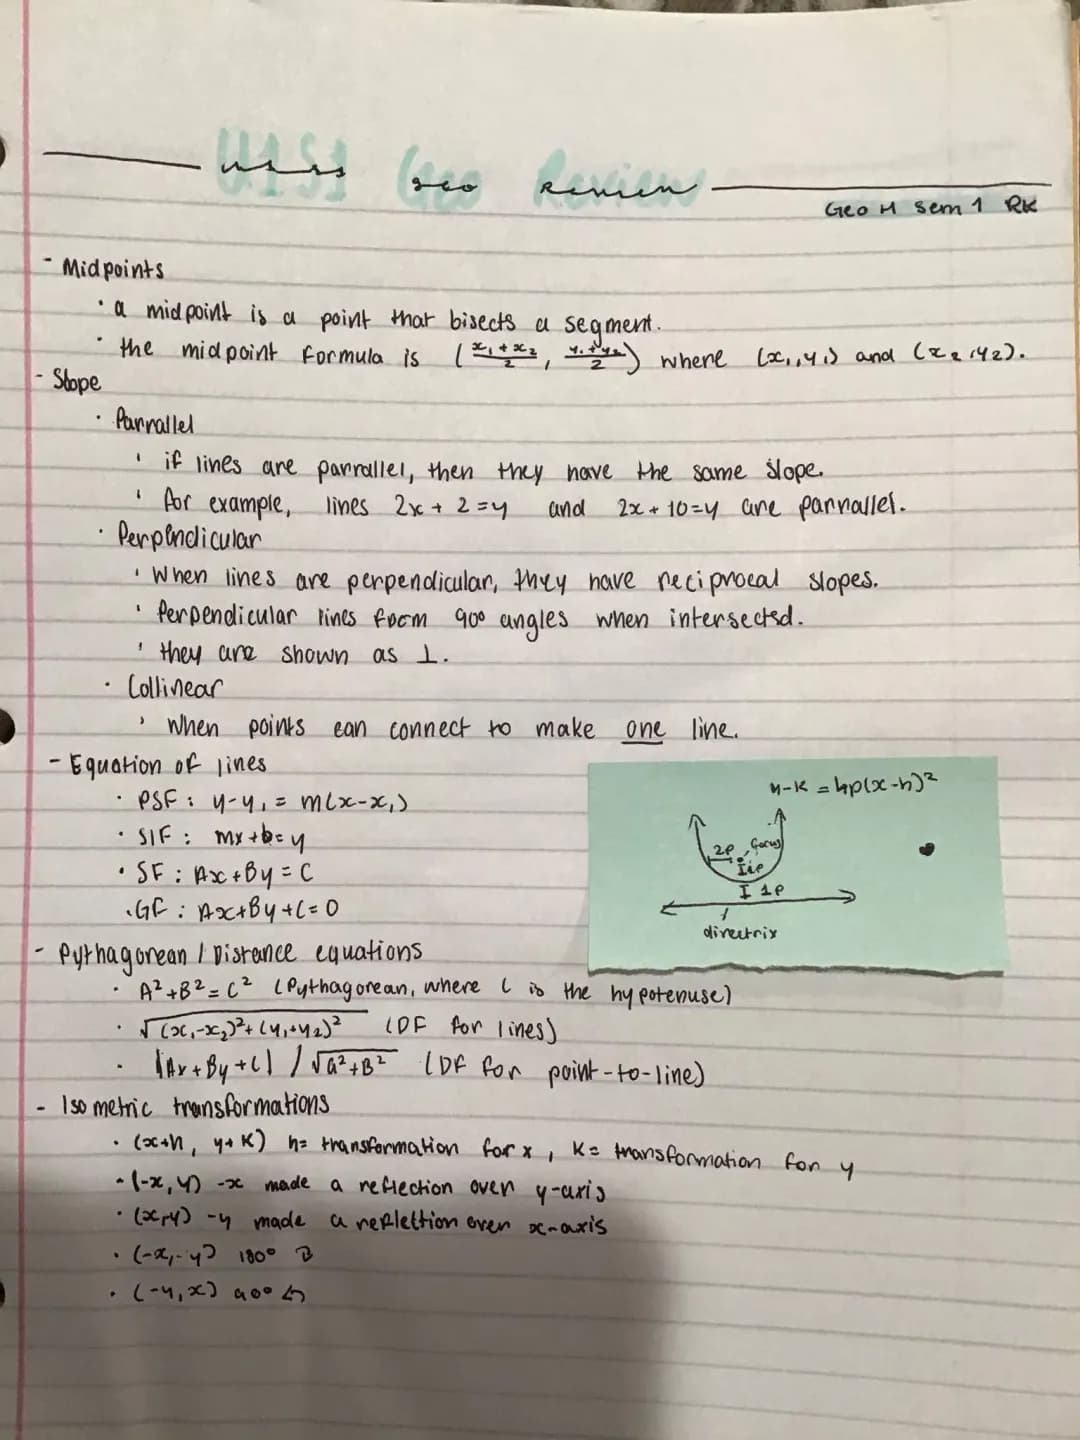 U1S1 Geo Review
Geo H Sem 1 RK
- Midpoints
· a midpoint is a point that bisects a segment.
· the midpoint formula is (x₁+x₂/2, y₁+y₂/2) where (x₁,y₁) and (x₂,y₂).
- Slope
· Parrallel
' if lines are parrallel, then they have the same slope.
' for example, lines 2x + 2 = y and 2x + 10 = y are parrallel.
· Perpendicular
' When lines are perpendicular, they have reciprocal slopes.
' Perpendicular lines form 90° angles when intersected.
' they are shown as ⊥.
· Collinear
' When points can connect to make one line.
- Equation of lines
· PSF: y-y₁ = m(x-x₁)
· SIF: mx+b=y
· SF: Ax+By=C
· GF: Ax+By+C=0
y-k = 4p(x-h)²
2p focus
1p
1p
directrix
- Pythagorean / Distance equations
· A²+B²=C² (Pythagorean, where C is the hypotenuse)
· √(x₁-x₂)²+(y₁+y₂)² (DF for lines)
· |Ax+By+C| / √a²+B² (DF for point-to-line)
- Isometric transformations
· (x+h, y+k) h= transformation for x, k= transformation for y
· (-x,y) -x made a reflection over y-axis
· (x,-y) -y made a reflection over x-axis
· (-x,-y) 180°
· (-y,x) 90° ↺